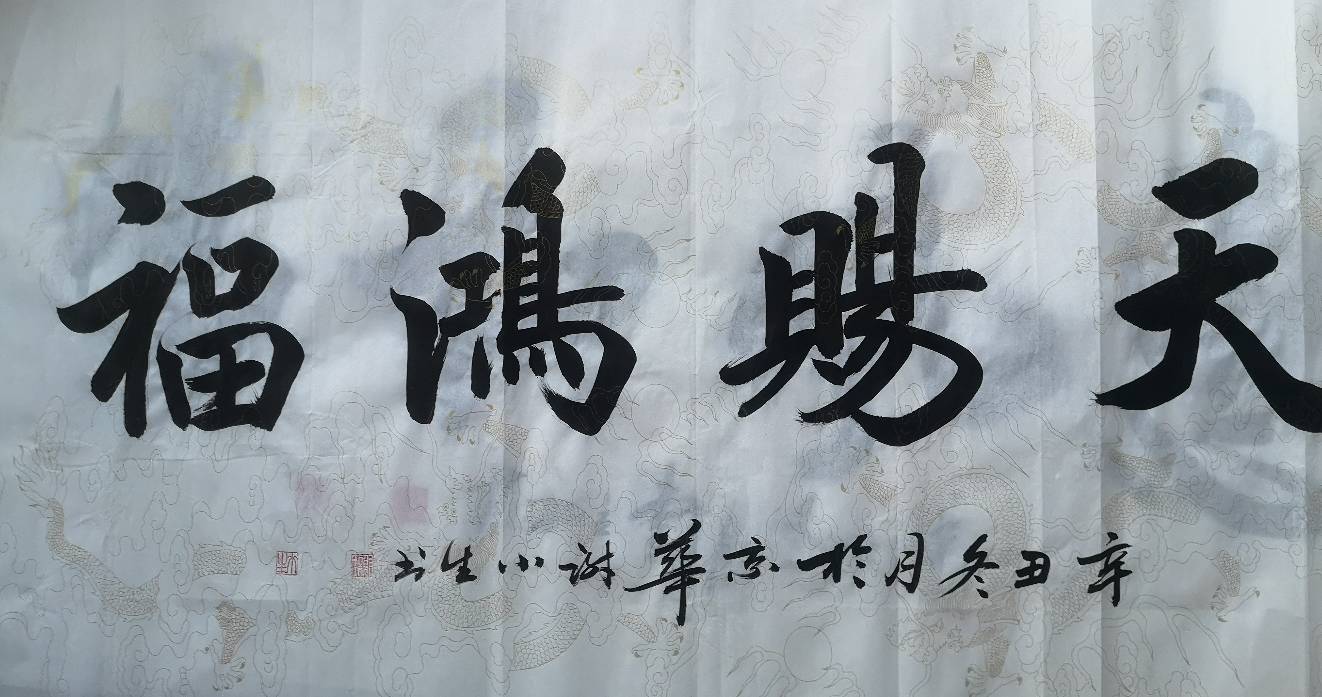 天赐鸿福
辛丑冬月於京華谢小生书